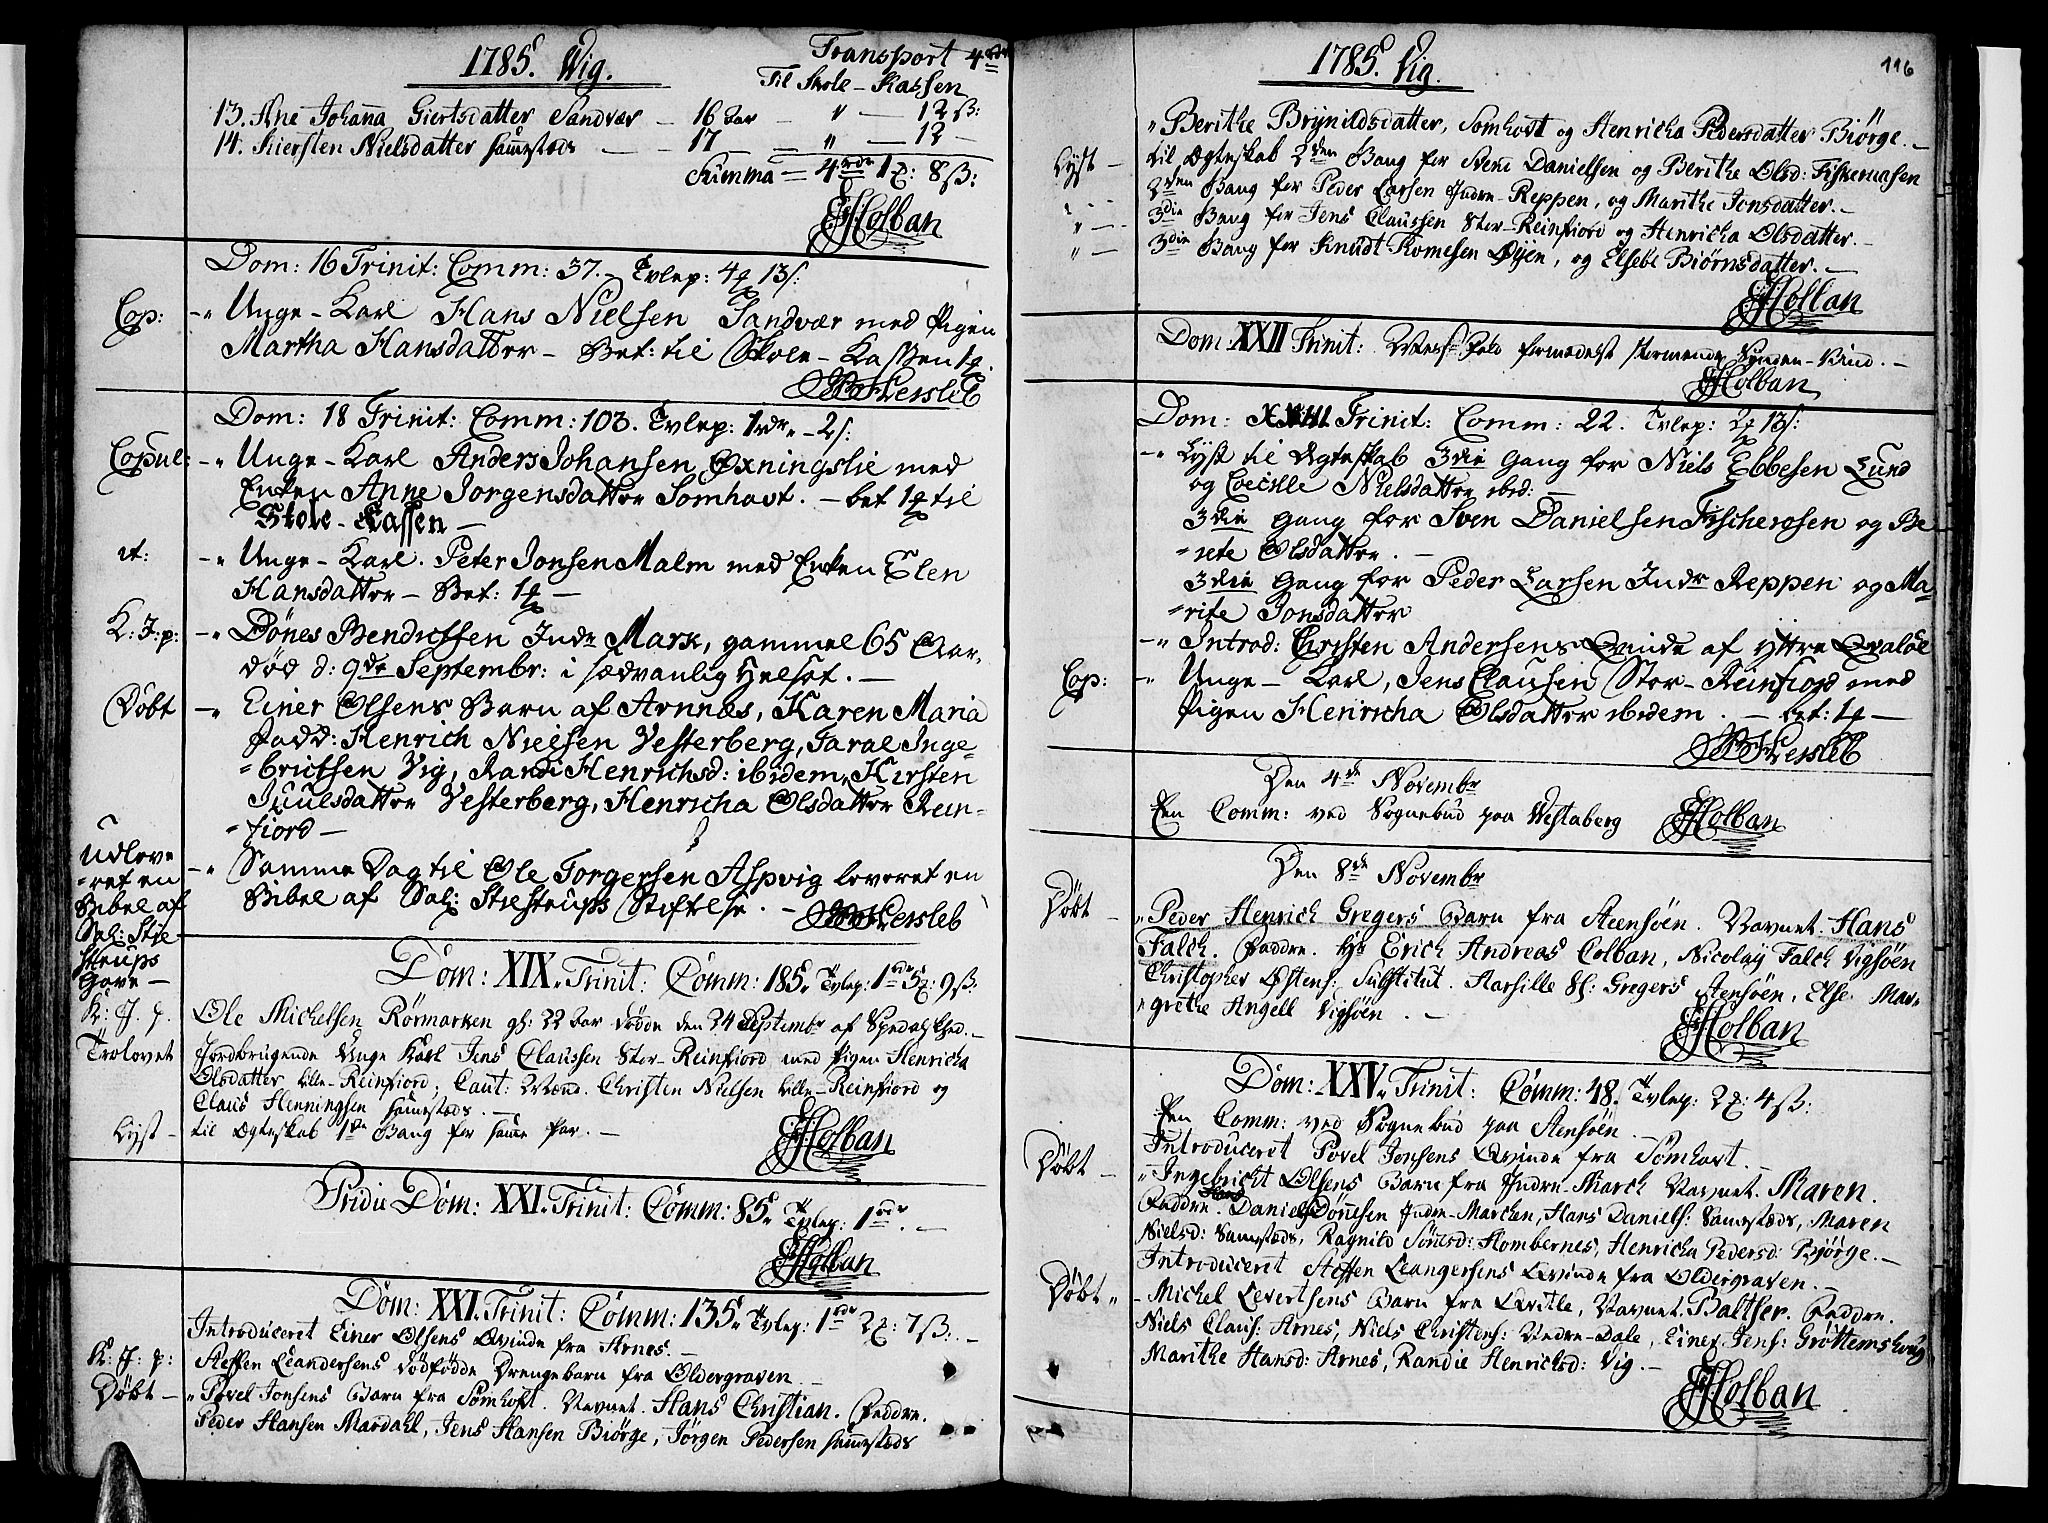 1785. Wig.
Transport 4 rdr
Til Skole-Kassen
13. Ane Johanna Giertsdatter Sandvær – 16 aar – " – 12 ß:
14. Kiersten Nielsdatter samestæds – 17 – " – 12 –
Summa = 4 rdr 1 : 8 ß:
EAColban
Dom: 16 Trinit: Comm: 37. – Tvlep: 4 13 s:
Cop: – " Unge-Karl Hans Nielsen Sandvær med Pigen
Martha Hansdatter – Bet: til Skole-Kassen 1
Hersleb
Dom: 18 Trinit: Comm: 103. Tvlep: 1 rdr " – 2 s:
Copul: – " Unge-Karl Anders Johansen Oxningslie med
Enken Anne Jorgensdatter Somhavt. – bet 1 til
Skole-Kassen –
it: – " Unge-Karl. Peter Jonsen Malm med Enken Elen
Hansdatter – Bet: 1 –
K: J: p: – " Dønes Bendictsen Indr Mark, gammel 65 Aar,
død d: 9de Septembr: i sædvanlig Helsot. –
Døbt – " Einer Olsens Barn af Arnnæs, Karen Maria
Fadd: Henrich Nielsen Vesterberg, Taral Inge-
-brictsen Vig, Randi Henrichsd: ibidem, Kirsten
Juulsdatter Vesterberg, Henricha Olsdatter Rein-
-fiord –
Udleve
-ret en
Bibel af
Sal: Stie
strups
Gave –
– " Samme Dag til Ole Torgersen Aspvig leveret en
Bibel af Sal: Stiestrups Stiftelse. – Hersleb
Dom: XIX. Trinit: Comm: 185. Tvlep: 1 rdr 5 : 9 ß:
K: J: p. Ole Michelsen Rørmarken gl: 22 Aar døde den 24 Septembr af Spedalskhed. –
Trolovet Jordbrugende Unge Karl Jens Claussen Stor-Reinfiord med Pigen Henricha
Olsdatter Lille-Reinfiord; Caut: Mænd. Christen Nielsen Lille-Reinfiord og
Claus Henningsen samestæds. –
Lyst – til Ægteskab 1ste Gang for same Par. –
EAColban
Pridie Dom: XXI. Trinit: Comm: 85. Tvlep: 1 rdr. –
EAColban
Dom: XXI. Trinit: Comm: 135. Tvlep: 1 rdr 2 : 7 ß: –
Introduceret Einer Olsens Qvinde fra Arnes. –
K: J: p: Steffen Leandersens dødfødde Drengebarn fra Oldergraven. –
Døbt – " Povel Jonsens Barn fra Sømhoft. Navnet. Hans Christian. Faddre.
Peder Hansen Mardahl, Jens Hansen Biørge, Jørgen Pedersen samestæds
1785. Vig.
116
" Berithe Brynildsdatter, Somhovt og Henricha Pedersdatter Biørge. –
Lyst – til Ægteskab 2den Gang for Svend Danielsen og Berithe Olsd: Fiskerosen
" – 2den Gang for Peder Larsen Indre-Reppen, og Marithe Jonsdatter. –
" – 3die Gang for Jens Claussen Stor-Reinfiord og Henricha Olsdatter. –
" – 3die Gang for Knudt Tomesen Øyen, og Elsebe Biørnsdatter. –
EAColban
Dom: XXII Trinit: Messe Fald formedelst stormende Synden-Vind. –
EAColban
Dom: XXIII Trinit: Comm: 22. Tvlep: 2 13 s:
– " Lyst til Ægteskab 3die Gang for Niels Ebbesen Lund
og Coecille Nielsdatter ibid: –
3die Gang for Sven Danielsen Fischerosen og Be-
-rete Olsdatter. –
3die Gang for Peder Larsen Indr Reppen og Ma-
-rite Jonsdatter
– " Introd: Christen Andersens Qvinde af Yttre Qvaløe
Cop: – " Unge-Karl, Jens Clausen Stor-Reinfiord med
Pigen Henricha Olsdatter ibidem. – bet: 1 –
Hersleb
Den 4de Novembr
Een Comm: ved Sognebud paa Westaberg EAColban
Den 8de Novembr
Døbt – " Peder Henrich Gregers Barn fra Steensøen. Navnet. Hans
Falch. Faddre. Hr Erich Andreas Colban, Nicolay Falch Vigsøen
Christopher Østens: Substitut. Harsille Sl: Gregers Stensøen, Else Mar-
"grethe Angell Vigsøen. –
EAColban
Dom: XXV. Trinit: Comm: 48. Tvlep: 2 : 4 ß:
Een Comm: ved Sognebud paa Stensøen. –
Introduceret Povel Jonsens Qvinde fra Sømhovt. –
Døbt – " Ingebricht Olsens Barn fra Indre-March Navnet. Maren.
Faddre. Daniel Dønesen Indre-Marchen, Hans Daniels: Samestæds, Maren
Nielsd: Samestæds, Ragnild Sønesd: Hombernes, Henricha Pedersd: Biørge. –
Introduceret Steffen Leangersens Qvinde fra Oldergraven. –
Døbt " – Michel Levertsens Barn fra Qvitle, Navnet. Baltser. Faddre.
Niels Claus: Arnes, Niels Christens: Nedre-Dale, Einer Jens: Grøttemshoug
Marithe Hansd: Arnes, Randie Henrichsd: Vig. –
EAColban